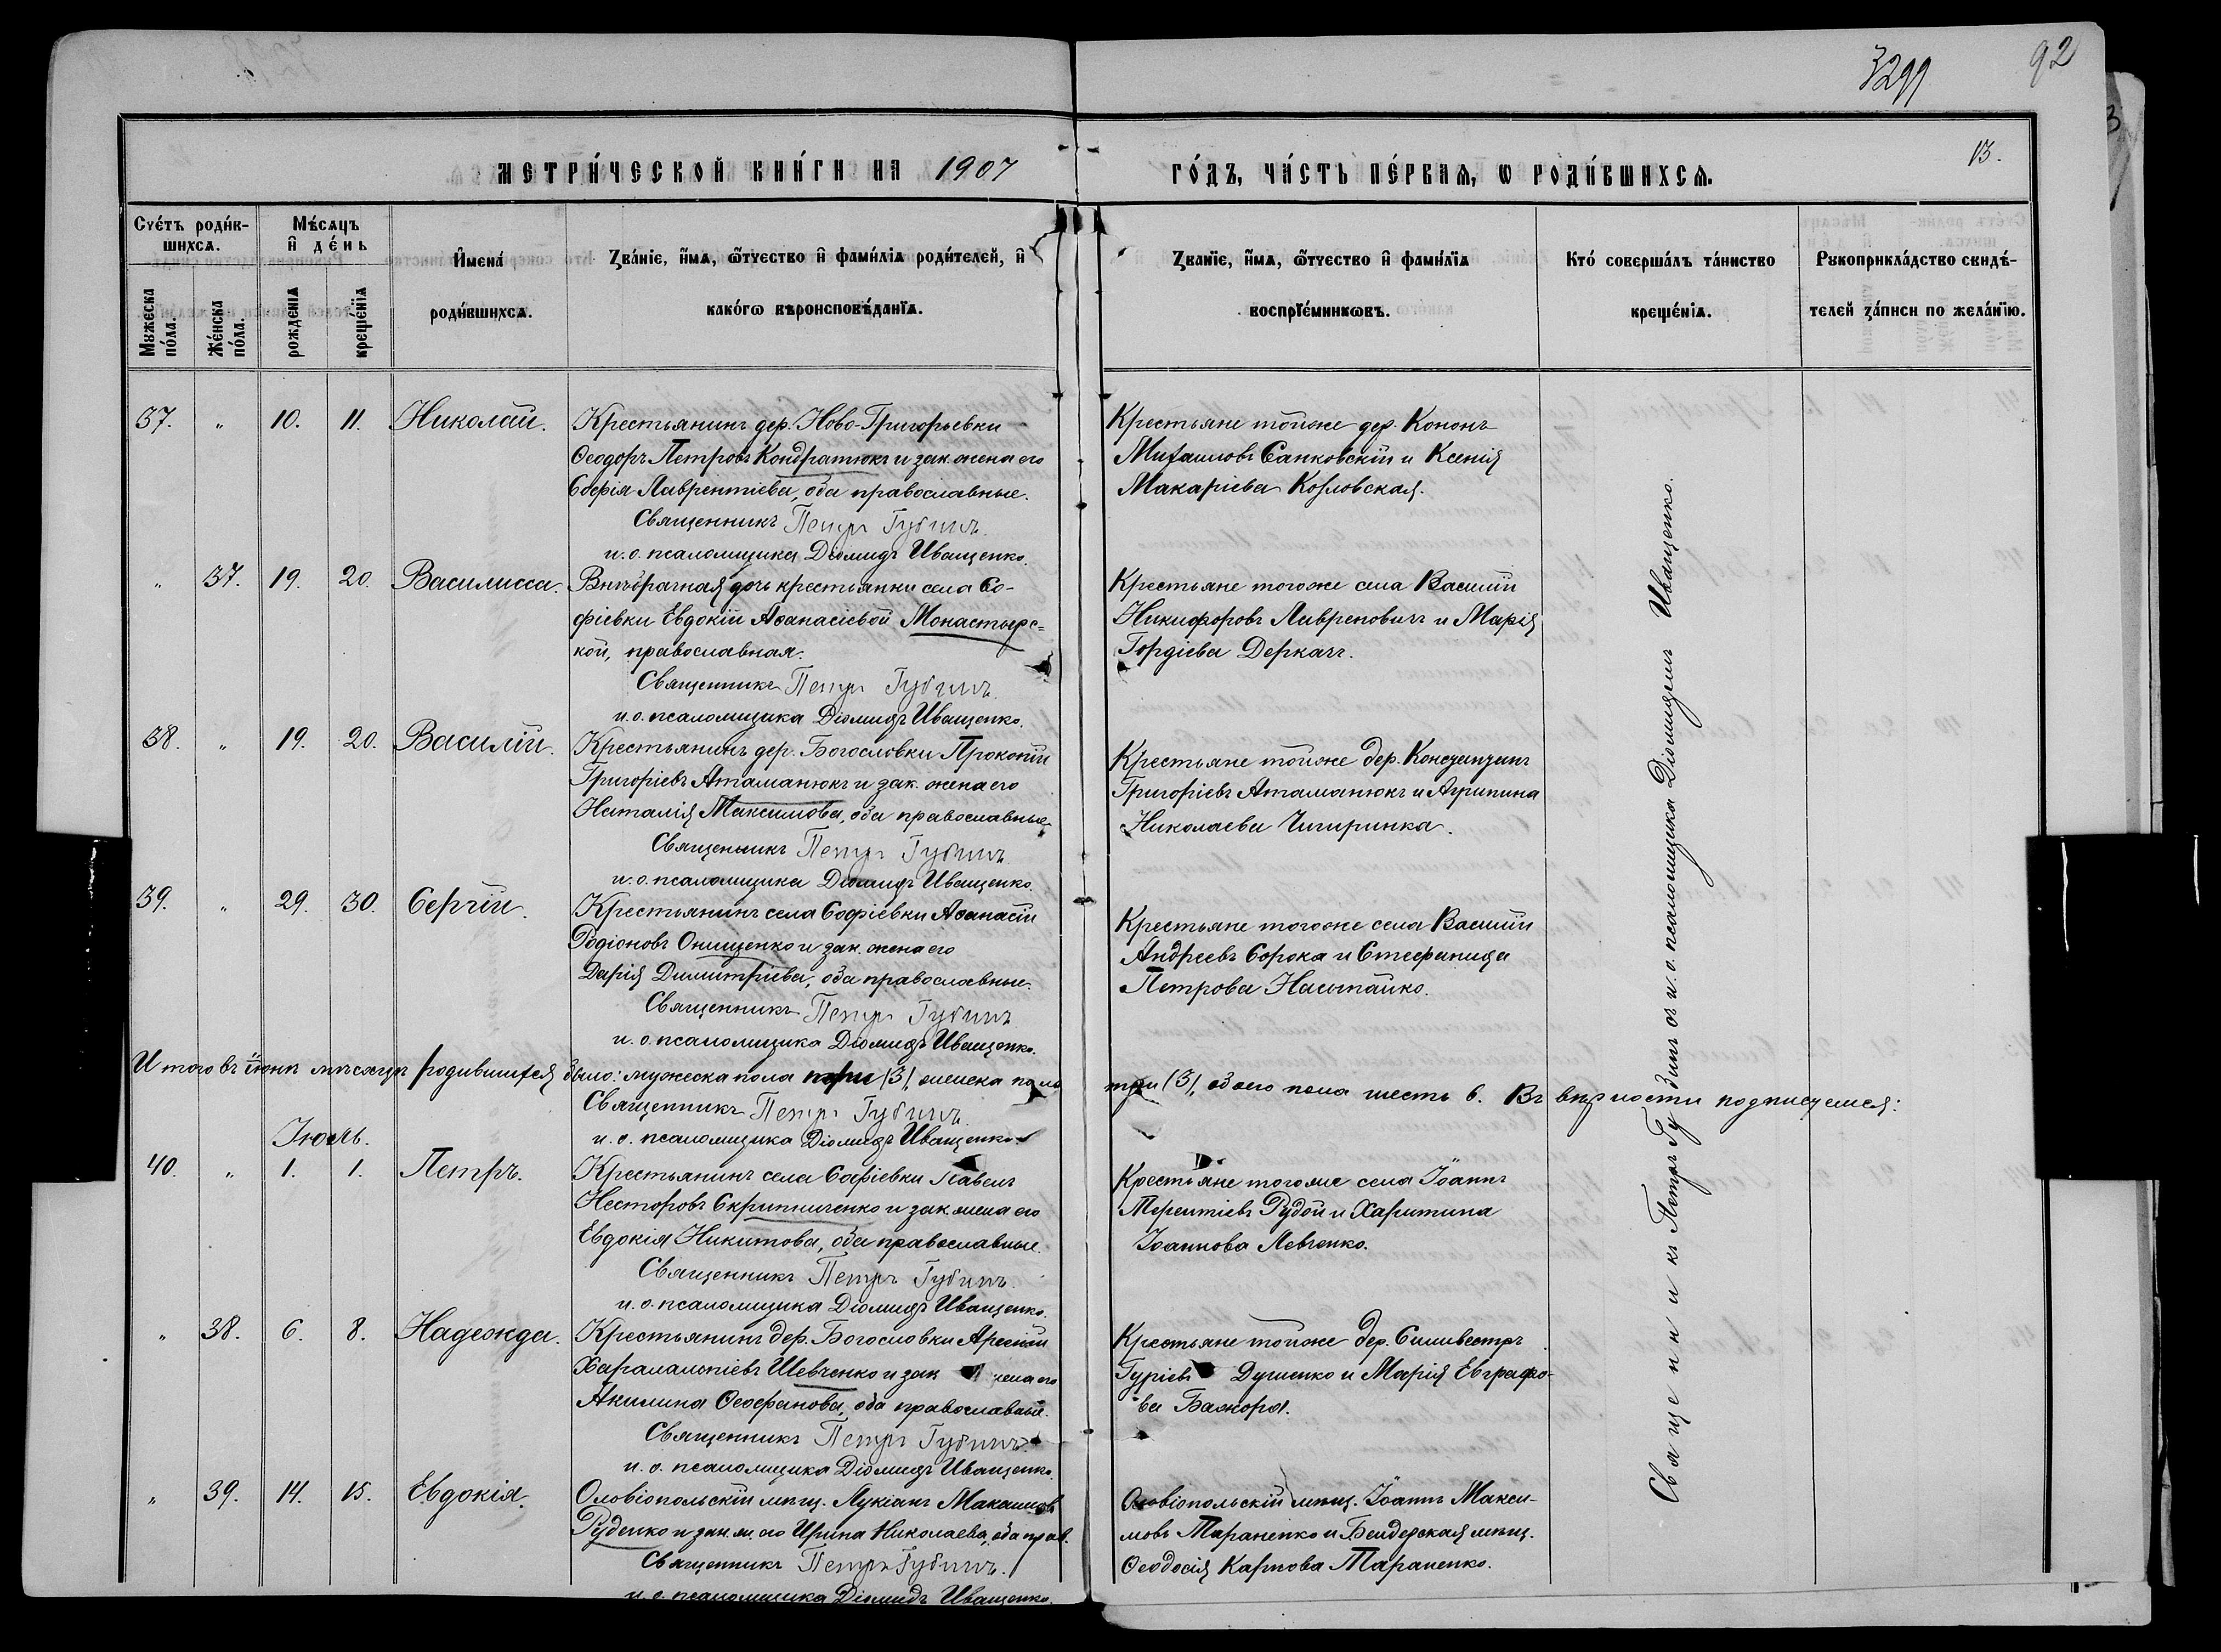 3299
92
13.
МЕТРИ́ЧЕСКОЙ КНИ́ГИ НА 1907 ГО́ДЪ, ЧА́СТЬ ПЕ́РВАѦ, Ѡ РОДИ́ВШИХСѦ.
Счéтъ роди́в-
шихсѧ.
Мѣ́сѧцъ
и҆ де́нь
Мꙋжеска
по́ла.
Же́нска
по́ла.
рожде́нїѧ
креще́нїѧ
И҆мена́
роди́вшихсѧ.
Зва́нїе, и҆́мѧ, ѻ҆́тчество и҆ фами́лїѧ роди́телей, и҆
како́гѡ вѣроисповѣ́данїѧ.
Зва́нїе, и҆́мѧ, ѻ҆́тчество и҆ фами́лїѧ
воспрїе́мникѡвъ.
Кто́ соверша́лъ та́инство
креще́нїѧ.
Рꙋкоприкла́дство свидѣ́-
телей за́писи по жела́нїю.
37. " 10. 11. Николай.
Крестьянинъ дер. Ново-Григорьевки
Ѳеодоръ Петровъ Кондратюкъ и зак. жена его
Софія Лаврентіева, оба православные.
Священникъ Петръ Губинъ.
и. о. псаломщика Діомидъ Иващенко.
Крестьяне тойже дер. Кононъ
Михаиловъ Санковскій и Ксенія
Макаріева Козловская.
" 37. 19. 20. Василисса.
Внѣбрачная дочь крестьянки села Со-
фіевки Евдокіи Аѳанасіевой Монастырс=
кой, православная.
Священникъ Петръ Губинъ.
и. о. псаломщика Діомидъ Иващенко.
Крестьяне тогоже села Василій
Никифоровъ Лавреновичъ и Марія
Гордіева Деркачъ.
38. " 19. 20. Василій.
Крестьянинъ дер. Богословки Прокопій
Григоріевъ Атаманюкъ и зак. жена его
Наталія Максимова, оба православные.
Священникъ Петръ Губинъ
и. о. псаломщика Діомидъ Иващенко.
Крестьяне тойже дер. Константинъ
Григоріевъ Атаманюкъ и Агрипина
Николаева Чигиринка.
39. " 29. 30. Сергій.
Крестьянинъ села Софіевки Аѳанасій
Родіоновъ Онищенко и зак. жена его
Дарія Димитріева, оба православные.
Священникъ Петръ Губинъ
и. о. псаломщика Діомидъ Иващенко.
Крестьяне тогоже села Василій
Андреевъ Сорока и Стефанида
Петрова Насыпайко.
Итого въ іюнѣ мѣсяцѣ родившихся было: мужеска пола три (3), женска пола три (3), обоего пола шесть 6. Въ вѣрности подписуемся:
Священникъ Петръ Губинъ.
и. о. псаломщика Діомидъ Иващенко.
Іюль.
40. " 1. 1. Петръ.
Крестьянинъ села Софіевки Павелъ
Несторовъ Скрипниченко и зак. жена его
Евдокія Никитова, оба православные.
Священникъ Петръ Губинъ.
и. о. псаломщика Діомидъ Иващенко.
Крестьяне тогоже села Іоаннъ
Терентіевъ Рудой и Харитина
Іоаннова Левченко.
" 38. 6. 8. Надежда.
Крестьянинъ дер. Богословки Арсеній
Харалампіевъ Шевченко и зак жена его
Акилина Ѳеофанова, оба православные.
Священникъ Петръ Губинъ.
и. о. псаломщика Діомидъ Иващенко.
Крестьяне тойже дер. Силивестръ
Гуріевъ Душенко и Марія Евграфо-
ва Бажора.
" 39. 14. 15. Евдокія.
Оловіопольскій мѣщ. Лукіанъ Макаіиовъ
Руденко и зак. ж. его Ирина Николаева, оба прав.
Священникъ Петръ Губинъ.
и. о. псаломщика Діомидъ Иващенко.
Оловіопольскій мѣщ. Іоаннъ Макси-
мовъ Тараненко и Бендерская мѣщ.
Ѳеодосія Карпова Тараненко.
Священникъ Петръ Губинъ съ и. о. псаломщика Діомидомъ Иващенко.